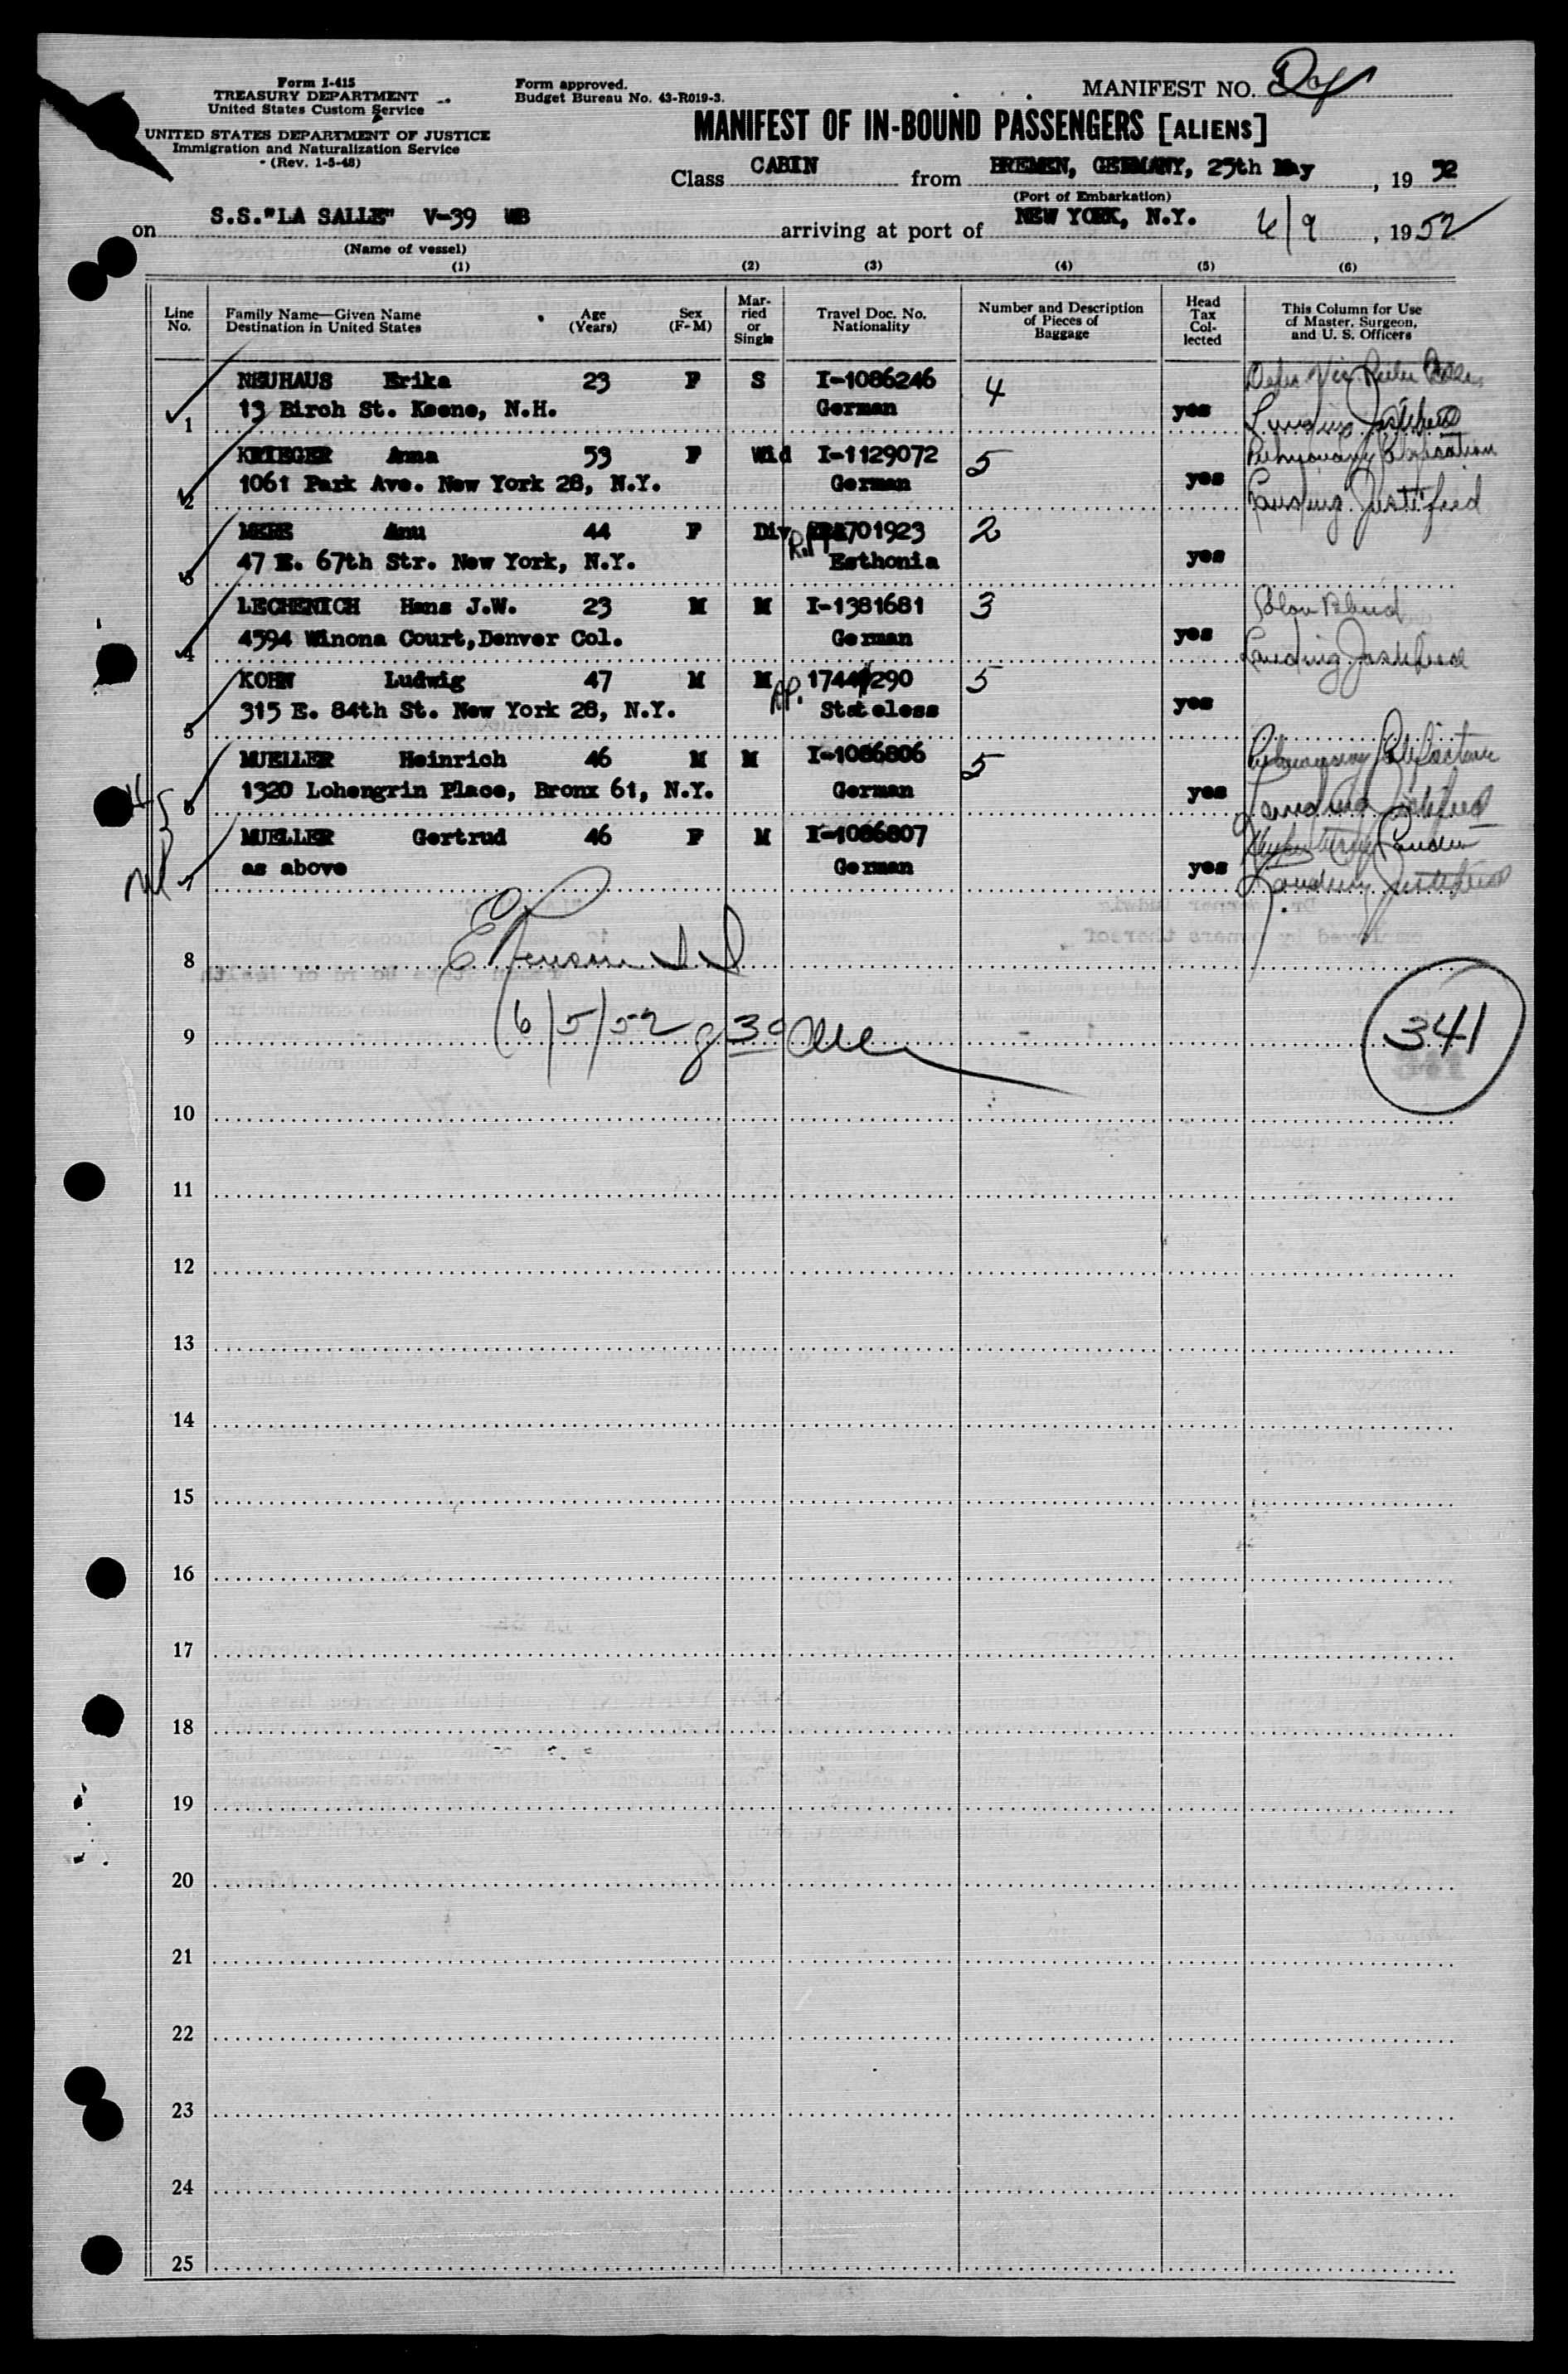 Form I-415
TREASURY DEPARTMENT
United States Custom Service
UNITED STATES DEPARTMENT OF JUSTICE
Immigration and Naturalization Service
(Rev. 1-5-48)
Form approved.
Budget Bureau No. 43-R019-3.
MANIFEST NO.
MANIFEST OF IN-BOUND PASSENGERS [ALIENS]
Class CABIN from BREMEN, GERMANY, 25th May, 19 52
(Port of Embarkation)
on S.S."LA SALLE" V-39 WB arriving at port of NEW YORK, N.Y. 6/9, 1952
(Name of vessel)
(1) (2) (3) (4) (5) (6)
Line No. Family Name—Given Name Destination in United States Age (Years) Sex (F-M) Married or Single Travel Doc. No. Nationality Number and Description of Pieces of Baggage Head Tax Collected This Column for Use of Master, Surgeon, and U. S. Officers
NEUHAUS Erika 23 F S I-1086246 4
1 13 Birch St. Keene, N.H. German yes Landing Justified
KRIEGER Anna 53 F Wid I-1129072 5 Pulmonary Calcification
2 1061 Park Ave. New York 28, N.Y. German yes Landing Justified
Anu 44 F Div 701923 2
3 47 E. 67th Str. New York, N.Y. Esthonia yes
LECHENICH Hans J.W. 23 M M I-1381681 3
4 4594 Winona Court, Denver Col. German yes Landing Justified
KOHN Ludwig 47 M M AP. 290 5
5 315 E. 84th St. New York 28, N.Y. Stateless yes
MUELLER Heinrich 46 M M I-1086806 5 Pulmonary
6 1320 Lohengrin Place, Bronx 61, N.Y. German yes Landing Justified
MUELLER Gertrud 46 F M I-1086807
7 as above German yes Landing Justified
8
6/5/52
9
341
10
11
12
13
14
15
16
17
18
19
20
21
22
23
24
25